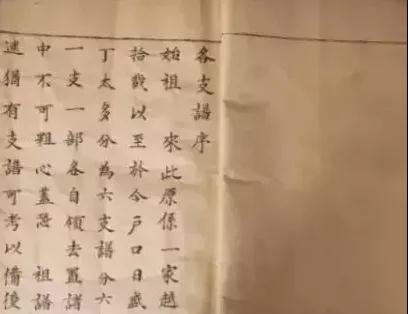 各支譜序
始祖 來此原係一家越
拾以至於今戶口日盛
丁太多分為六支譜分六
一支一部各自領去置諸
中不可粗心蓋 祖譜
迷猶有支譜可考以備後